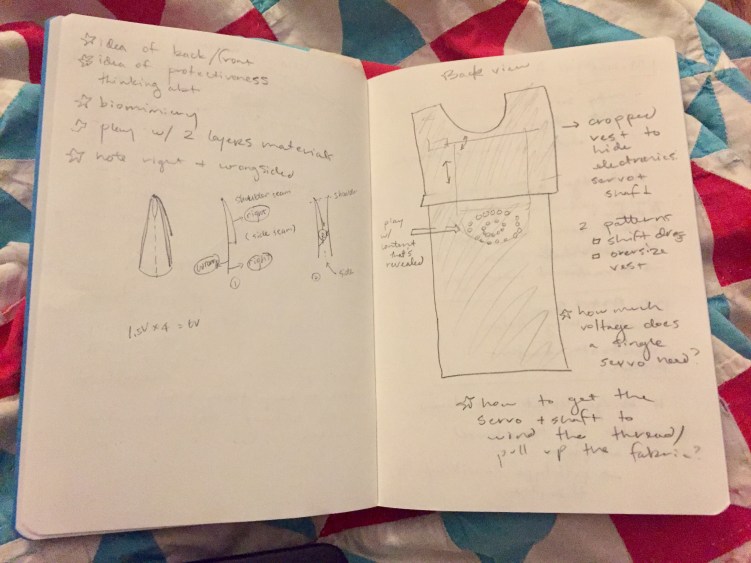 ☆ idea of back/front
☆ idea of protectiveness
thinking abt
☆ biomimicry
☆ play w/ 2 layers materials
☆ note right + wrongsided
shoulder seam
right
(side seam)
wrong
right
①
shoulder
②
side
1.5V x 4 = 6V
Back view
→ cropped
vest to
hide
electronics
servo +
shaft
play
w/
content
that's
revealed
2 patterns
□ shift dress
□ oversize
vest
☆ how much
voltage does
a single
servo need?
☆ how to get the
servo + shaft to
wind the thread/
pull up the fabric?